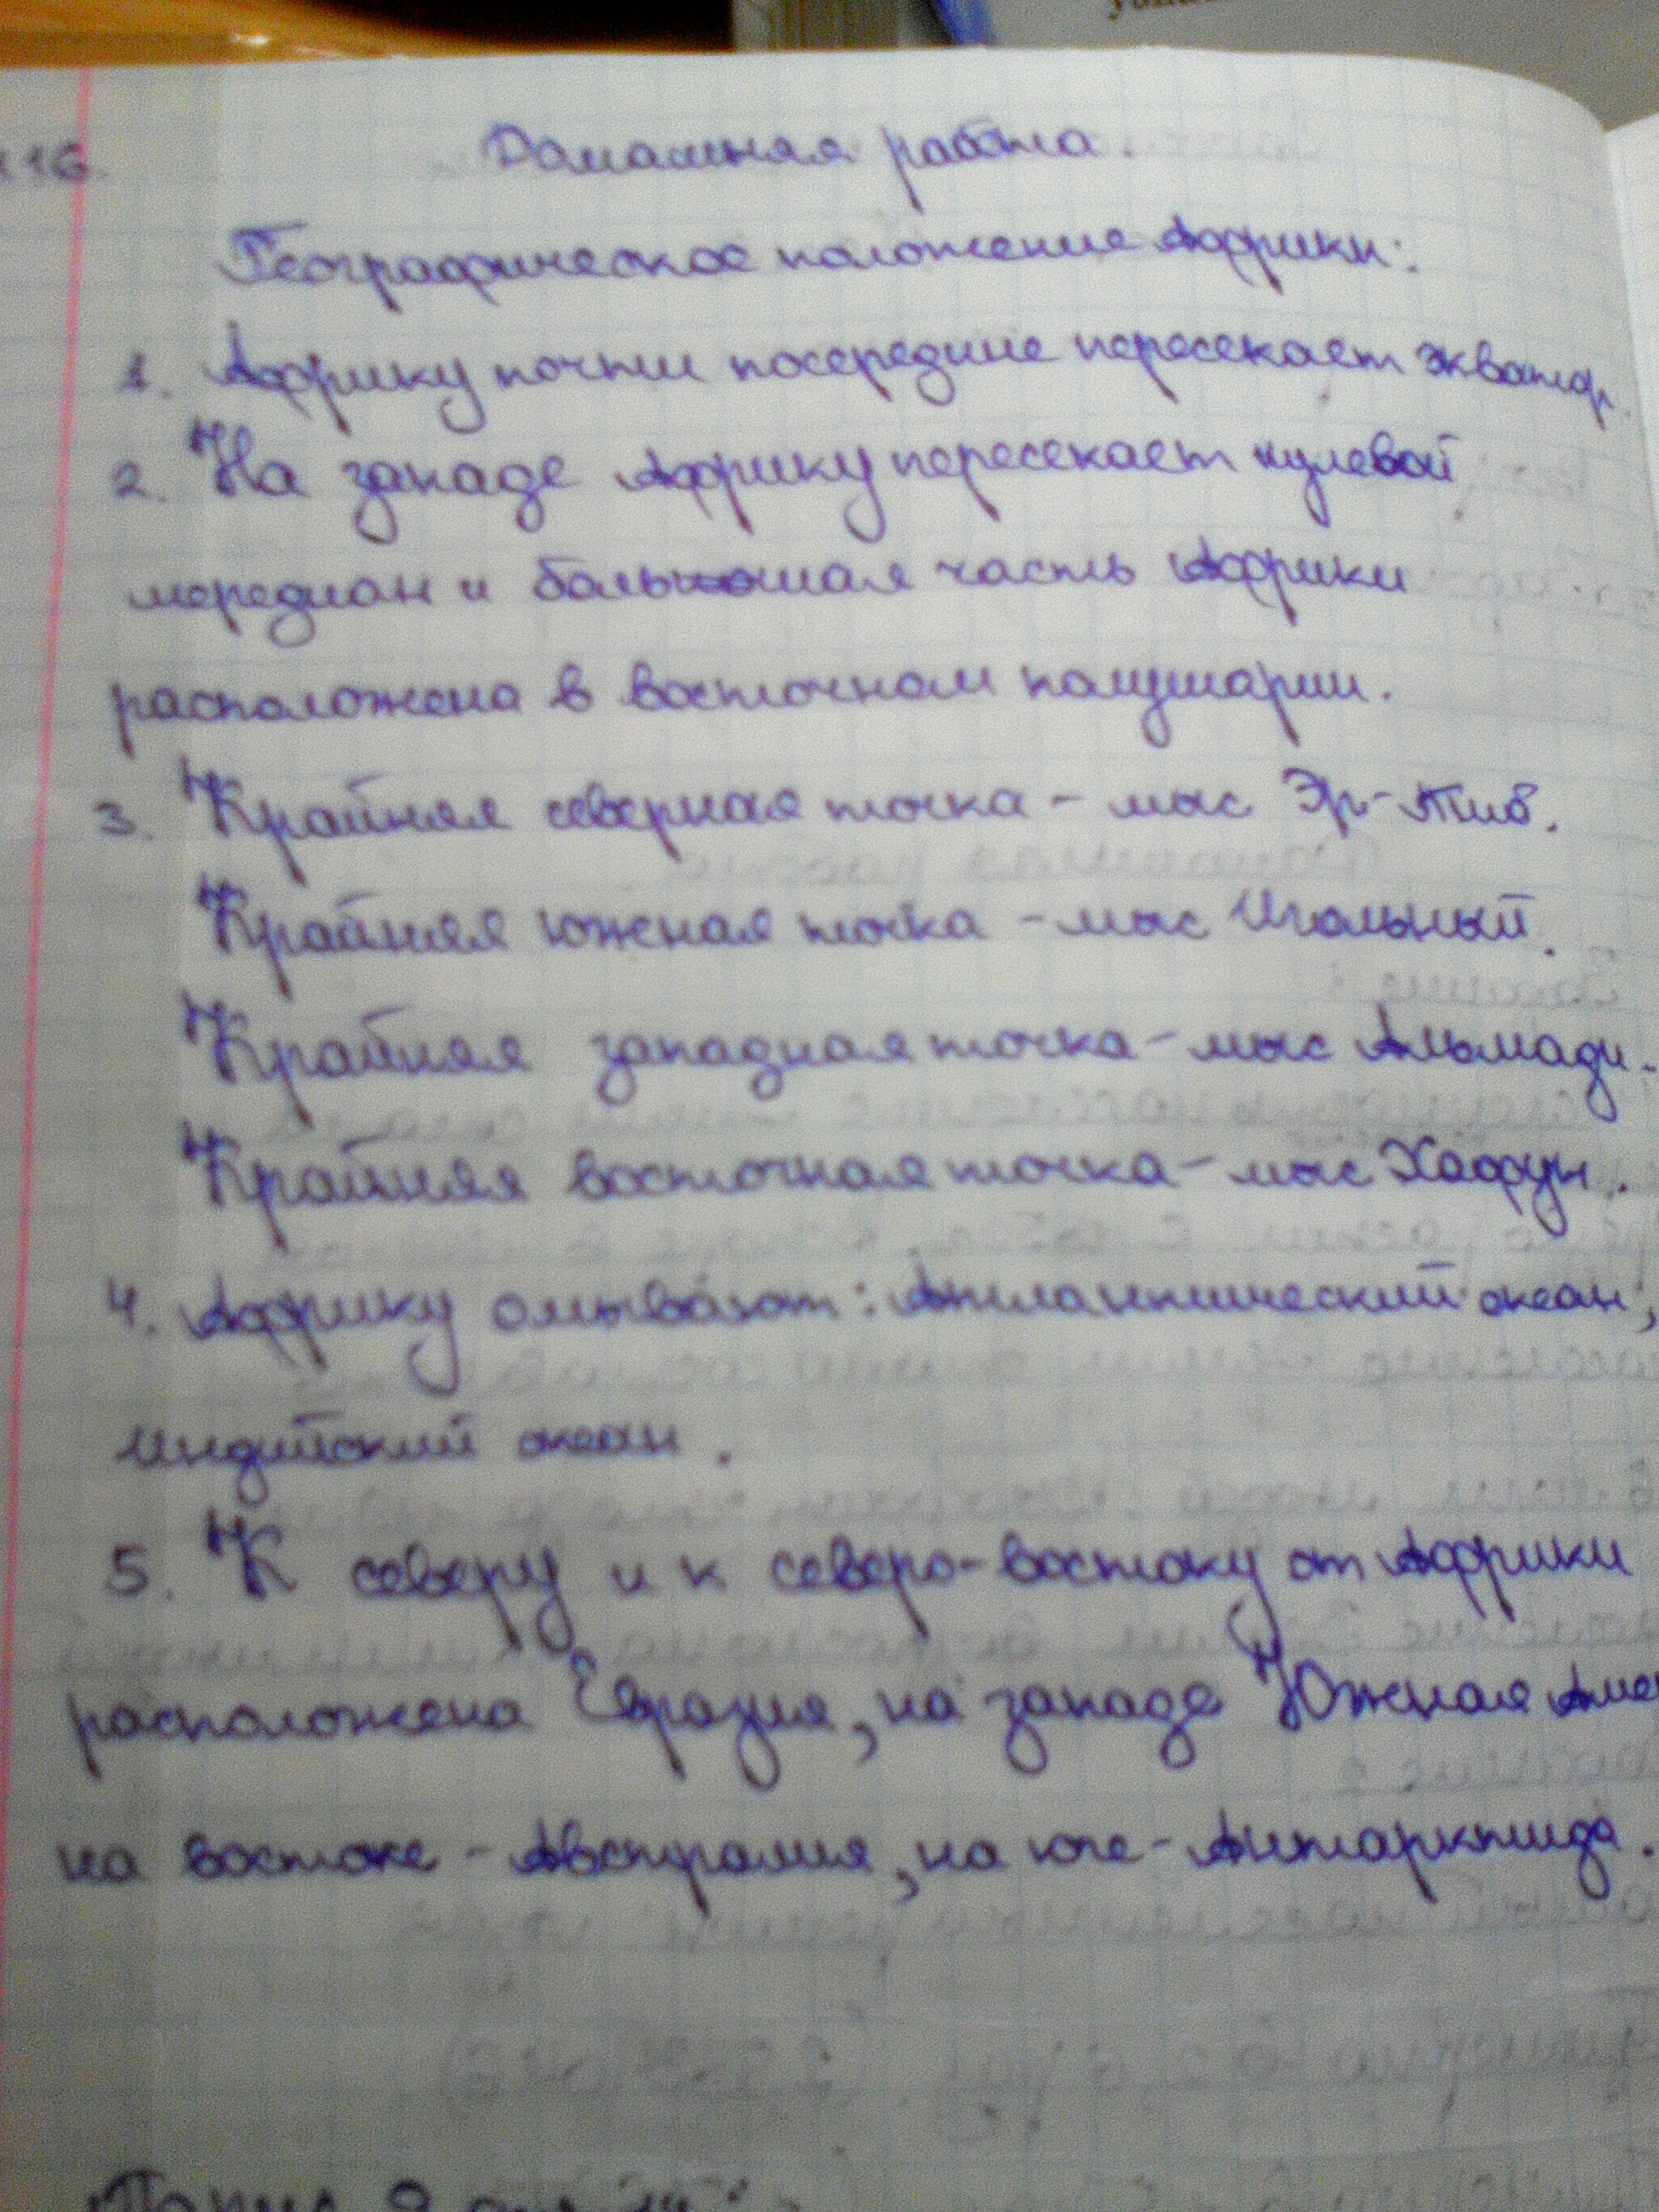 16.
Домашняя работа.
Географическое положение Африки:
1. Африку почти посередине пересекает экватор.
2. На западе Африку пересекает нулевой
меридиан и большая часть Африки
расположена в восточном полушарии.
3. Крайняя северная точка - мыс Эр-Тиб.
Крайняя южная точка - мыс Игольный.
Крайняя западная точка - мыс Альмади.
Крайняя восточная точка - мыс Хафун.
4. Африку омывают: Атлантический океан,
Индийский океан.
5. К северу и к северо-востоку от Африки
расположена Евразия, на западе Южная Аме
на востоке - Австралия, на юге - Антарктида.